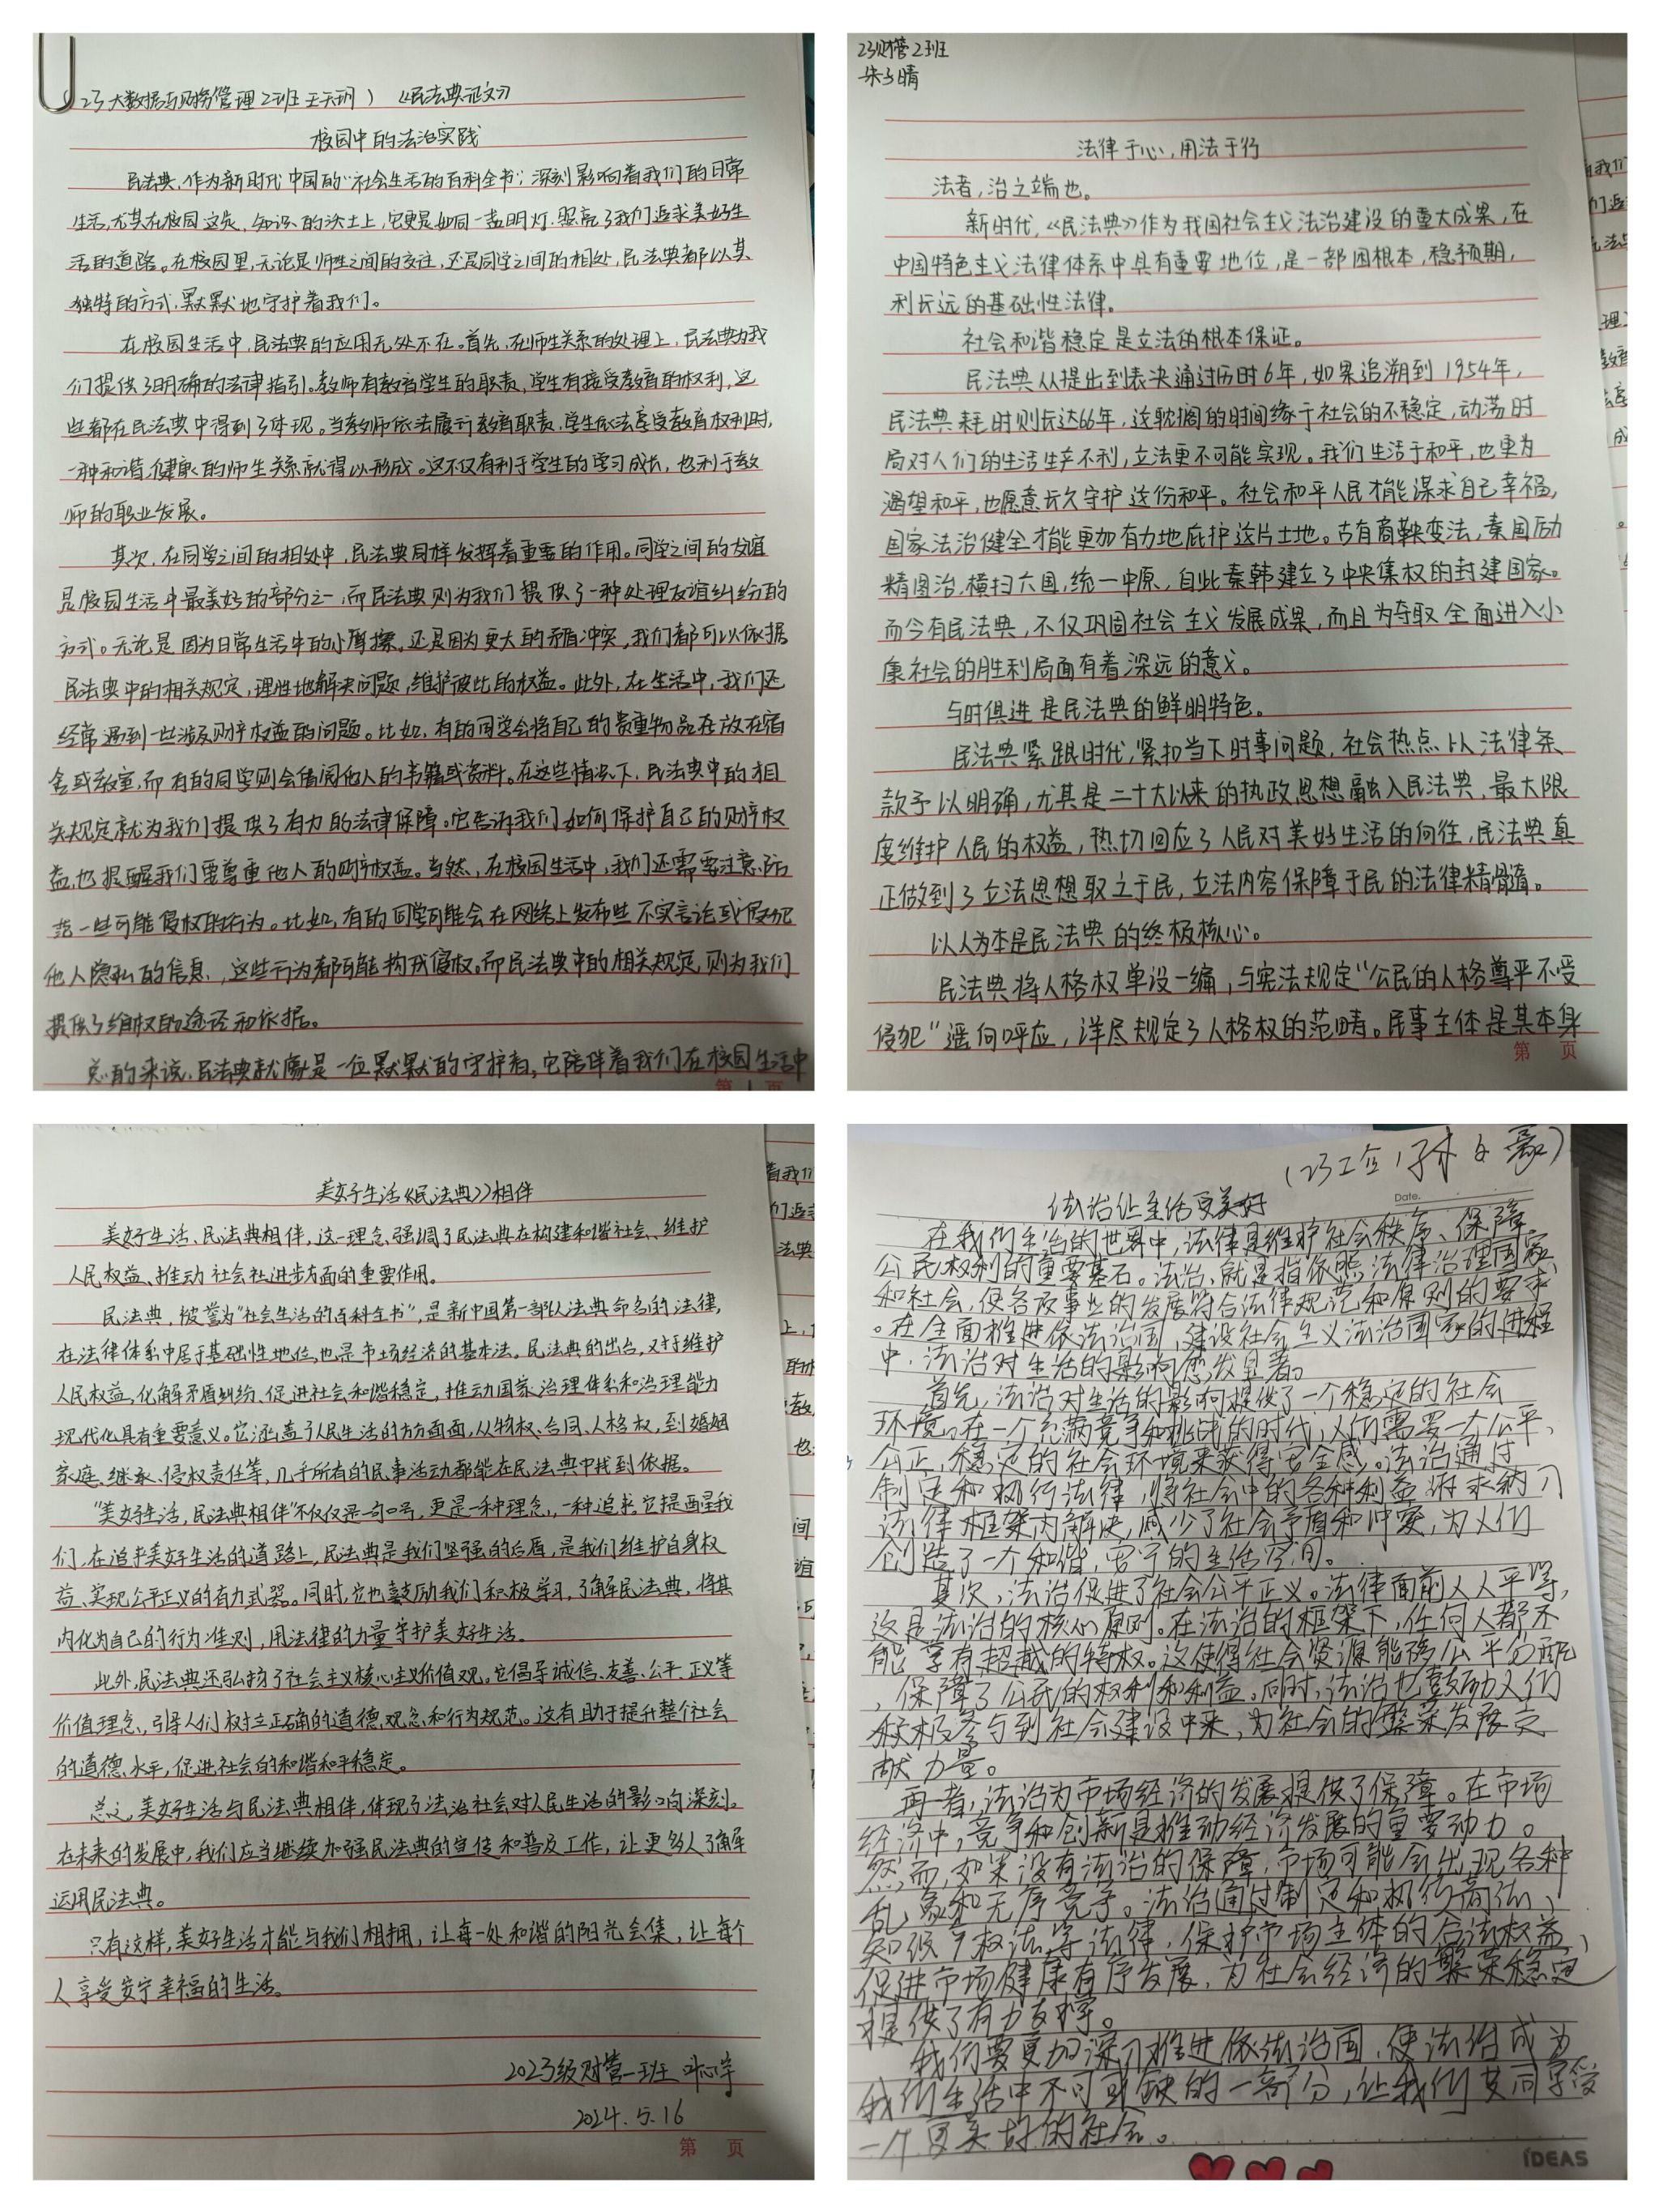 (23大数据与财务管理2班王天玥) 《民法典征文》
校园中的法治实践
民法典,作为新时代中国的“社会生活的百科全书”,深刻影响着我们的日常
生活,尤其在校园这片知识的沃土上,它更是如同一盏明灯,照亮了我们追求美好生
活的道路。在校园里,无论是师生之间的交往,还是同学之间的相处,民法典都以其
独特的方式,默默地守护着我们。
在校园生活中,民法典的应用无处不在。首先,在师生关系的处理上,民法典为我
们提供了明确的法律指引。教师有教育学生的职责,学生有接受教育的权利,这
些都在民法典中得到了体现。当教师依法履行教育职责,学生依法享受教育权利时,
一种和谐、健康的师生关系就得以形成。这不仅有利于学生的学习成长,也利于教
师的职业发展。
其次,在同学之间的相处中,民法典同样发挥着重要的作用。同学之间的友谊
是校园生活中最美好的部分之一,而民法典则为我们提供了一种处理友谊纠纷的
方式。无论是因为日常生活中的小摩擦,还是因为更大的矛盾冲突,我们都可以依据
民法典中的相关规定,理性地解决问题,维护彼此的权益。此外,在生活中,我们还
经常遇到一些涉及财产权益的问题。比如,有的同学会将自己的贵重物品存放在宿
舍或教室,而有的同学则会借阅他人的书籍或资料。在这些情况下,民法典中的相
关规定就为我们提供了有力的法律保障。它告诉我们如何保护自己的财产权
益,也提醒我们要尊重他人的财产权益。当然,在校园生活中,我们还需要注意防
范一些可能侵权的行为。比如,有的同学可能会在网络上发布些不实言论或侵犯
他人隐私的信息,这些行为都可能构成侵权。而民法典中的相关规定,则为我们
提供了维权的途径和依据。
总的来说,民法典就像是一位默默的守护者,它陪伴着我们在校园生活中
第1页
23财管2班
朱
晴
法律于心,用法于行
法者,治之端也。
新时代,《民法典》作为我国社会主义法治建设的重大成果,在
中国特色主义法律体系中具有重要地位,是一部固根本,稳预期,
利长远的基础性法律。
社会和谐稳定是立法的根本保证。
民法典从提出到表决通过历时6年,如果追溯到1954年,
民法典耗时则长达66年,这耽搁的时间缘于社会的不稳定,动荡时
局对人们的生活生产不利,立法更不可能实现。我们生活于和平,也更为
渴望和平,也愿意长久守护这份和平。社会和平人民才能谋求自己幸福,
国家法治健全才能更加有力地庇护这片土地。古有商鞅变法,秦国励
精图治,横扫六国,统一中原,自此秦韩建立了中央集权的封建国家。
而今有民法典,不仅巩固社会主义发展成果,而且为夺取全面进入小
康社会的胜利局面有着深远的意义。
与时俱进是民法典的鲜明特色。
民法典紧跟时代,紧扣当下时事问题,社会热点以法律条
款予以明确,尤其是二十大以来的执政思想融入民法典,最大限
度维护人民的权益,热切回应了人民对美好生活的向往,民法典真
正做到了立法思想取之于民,立法内容保障于民的法律精髓。
以人为本是民法典的终极核心。
民法典将人格权单设一编,与宪法规定“公民的人格尊严不受
侵犯”遥向呼应,详尽规定了人格权的范畴。民事主体是其本身
第 页
美好生活《民法典》相伴
美好生活、民法典相伴,这一理念,强调了民法典在构建和谐社会、维护
人民权益、推动社会社进步方面的重要作用。
民法典,被誉为“社会生活的百科全书”,是新中国第一部以法典命名的法律,
在法律体系中居于基础性地位,也是市场经济的基本法。民法典的出台,对于维护
人民权益,化解矛盾纠纷、促进社会和谐稳定,推动国家治理体系和治理能力
现代化具有重要意义。它涵盖了人民生活的方方面面,从物权、合同、人格权,到婚姻
家庭、继承、侵权责任等,几乎所有的民事活动都能在民法典中找到依据。
“美好生活,民法典相伴”不仅仅是一句口号,更是一种理念,一种追求。它提醒我
们,在追求美好生活的道路上,民法典是我们坚强的后盾,是我们维护自身权
益、实现公平正义的有力武器。同时,它也鼓励我们积极学习,了解民法典,将其
内化为自己的行为准则,用法律的力量守护美好生活。
此外,民法典还弘扬了社会主义核心主义价值观。它倡导诚信、友善、公平、正义等
价值理念,引导人们树立正确的道德观念和行为规范。这有助于提升整个社会
的道德水平,促进社会的和谐和平稳定。
总之,美好生活与民法典相伴,体现了法治社会对人民生活的影响深刻。
在未来的发展中,我们应当继续加强民法典的宣传和普及工作,让更多人了解
运用民法典。
只有这样,美好生活才能与我们相拥,让每一处和谐的阳光会集,让每个
人享受安宁幸福的生活。
2023级财管一班 叶心宇
2024.5.16
第 页
Date.
法治让生活更美好
在我们生活的世界中,法律是维护社会秩序、保障
公民权利的重要基石。法治,就是指依照法律治理国家
和社会,使各项事业的发展符合法律规范和原则的要求
。在全面推进依法治国,建设社会主义法治国家的进程
中,法治对生活的影响愈发显著。
首先,法治对生活的影响提供了一个稳定的社会
环境。在一个充满竞争和挑战的时代,人们需要一个公平、
公正,稳定的社会环境来获得安全感。法治通过
制定和执行法律,将社会中的各种利益诉求纳入
法律框架内解决,减少了社会矛盾和冲突,为人们
创造了一个和谐,安宁的生活空间。
其次,法治促进了社会公平正义。法律面前人人平等,
这是法治的核心原则。在法治的框架下,任何人都不
能享有超越的特权。这使得社会资源能够公平分配
,保障了公民的权利和利益。同时,法治也鼓励人们
积极参与到社会建设中来,为社会的繁荣发展贡
献力量。
再者,法治为市场经济的发展提供了保障。在市场
经济中,竞争和创新是推动经济发展的重要动力。
然而,如果没有法治的保障,市场可能会出现各种
乱象和无序竞争。法治通过制定和执行商法、
知识产权法等法律,保护市场主体的合法权益,
促进市场健康有序发展,为社会经济的繁荣稳定
提供了有力支撑。
我们要更加深入推进依法治国,使法治成为
我们生活中不可或缺的一部分,让我们共同享受
一个更美好的社会。
IDEAS